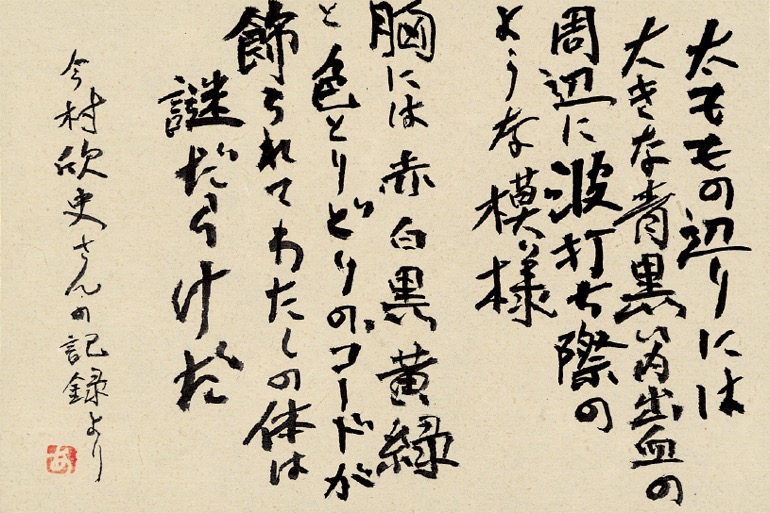 太ももの辺りには
大きな青黒い内出血の
周辺に波打ち際の
ような模様
胸には赤白黒黄緑
と色とりどりのコードが
飾られてわたしの体は
謎だらけだ
今村欣史さんの記録より